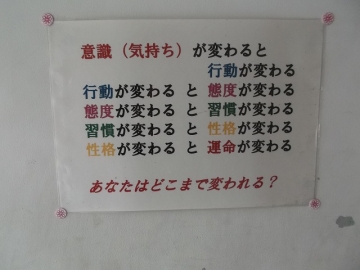 意識（気持ち）が変わると
行動が変わる
行動が変わる と 態度が変わる
態度が変わる と 習慣が変わる
習慣が変わる と 性格が変わる
性格が変わる と 運命が変わる
あなたはどこまで変われる？